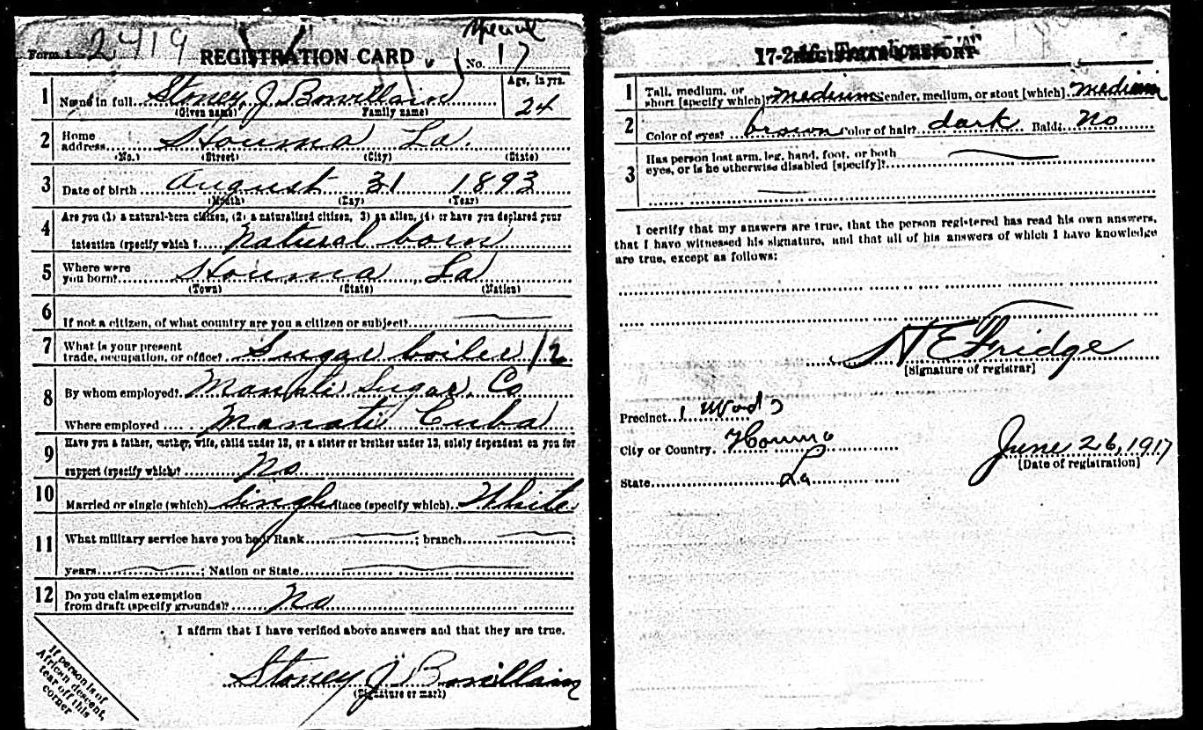 Form 1 2419 REGISTRATION CARD Special No. 17
1 Name in full Stoney J Bouvillain Age, in yrs. 24
(Given name) (Family name)
2 Home address Houma La.
(No.) (Street) (City) (State)
3 Date of birth August 31 1893
(Month) (Day) (Year)
4 Are you (1) a natural-born citizen, (2) a naturalized citizen, (3) an alien, (4) or have you declared your
intention (specify which)? Natural born
5 Where were you born? Houma La
(Town) (State) (Nation)
6 If not a citizen, of what country are you a citizen or subject?
7 What is your present trade, occupation, or office? Sugar boiler 12
8 By whom employed? Manati Sugar Co
Where employed Manati Cuba
9 Have you a father, mother, wife, child under 12, or a sister or brother under 12, solely dependent on you for
support (specify which)? No
10 Married or single (which) Single Race (specify which) White
11 What military service have you had? Rank ; branch ;
years ; Nation or State
12 Do you claim exemption from draft (specify grounds)? No
I affirm that I have verified above answers and that they are true.
Stoney J Bouvillain
(Signature or mark)
If person is of
African descent,
tear off this
corner
REGISTRAR'S REPORT
1 Tall, medium, or short (specify which)? Medium Slender, medium, or stout (which)? Medium
2 Color of eyes? brown Color of hair? dark Bald? No
3 Has person lost arm, leg, hand, foot, or both eyes, or is he otherwise disabled (specify)?
I certify that my answers are true, that the person registered has read his own answers,
that I have witnessed his signature, and that all of his answers of which I have knowledge
are true, except as follows:
H E Fridge
[Signature of registrar]
Precinct 1 Ward 3
City or Country Houma
State La
June 26, 1917
[Date of registration]